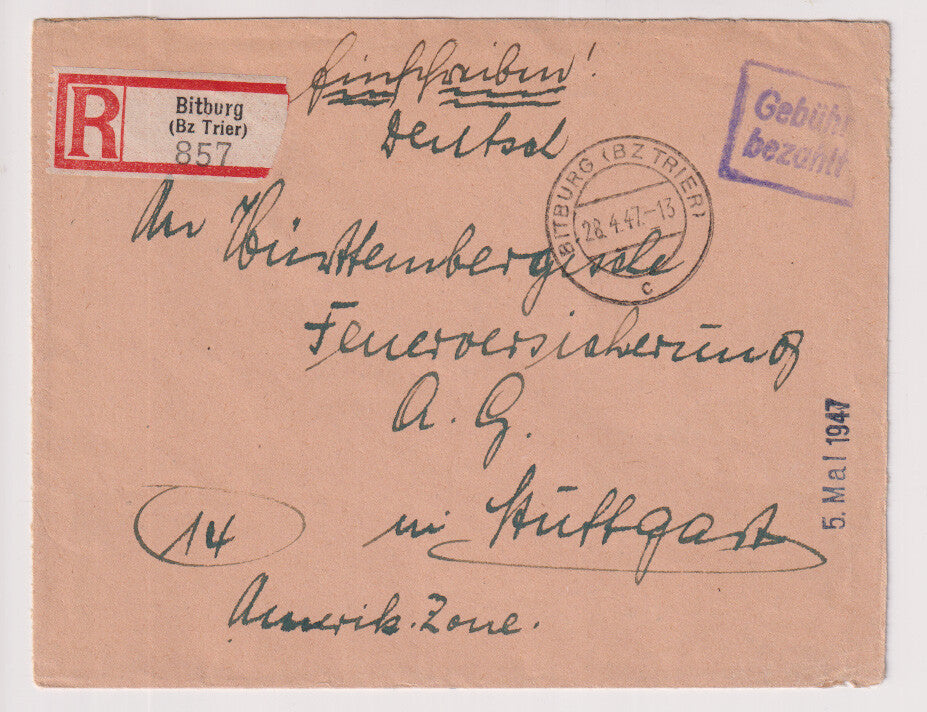 Einschreiben!
Deutsch
R
Bitburg
(Bz Trier)
857
Gebühr
bezahlt
BITBURG (BZ TRIER)
28.4.47.-13
c
An Württembergische
Feuerversicherung
A. G.
5. Mai 1947
14
in Stuttgart
Amerik. Zone.